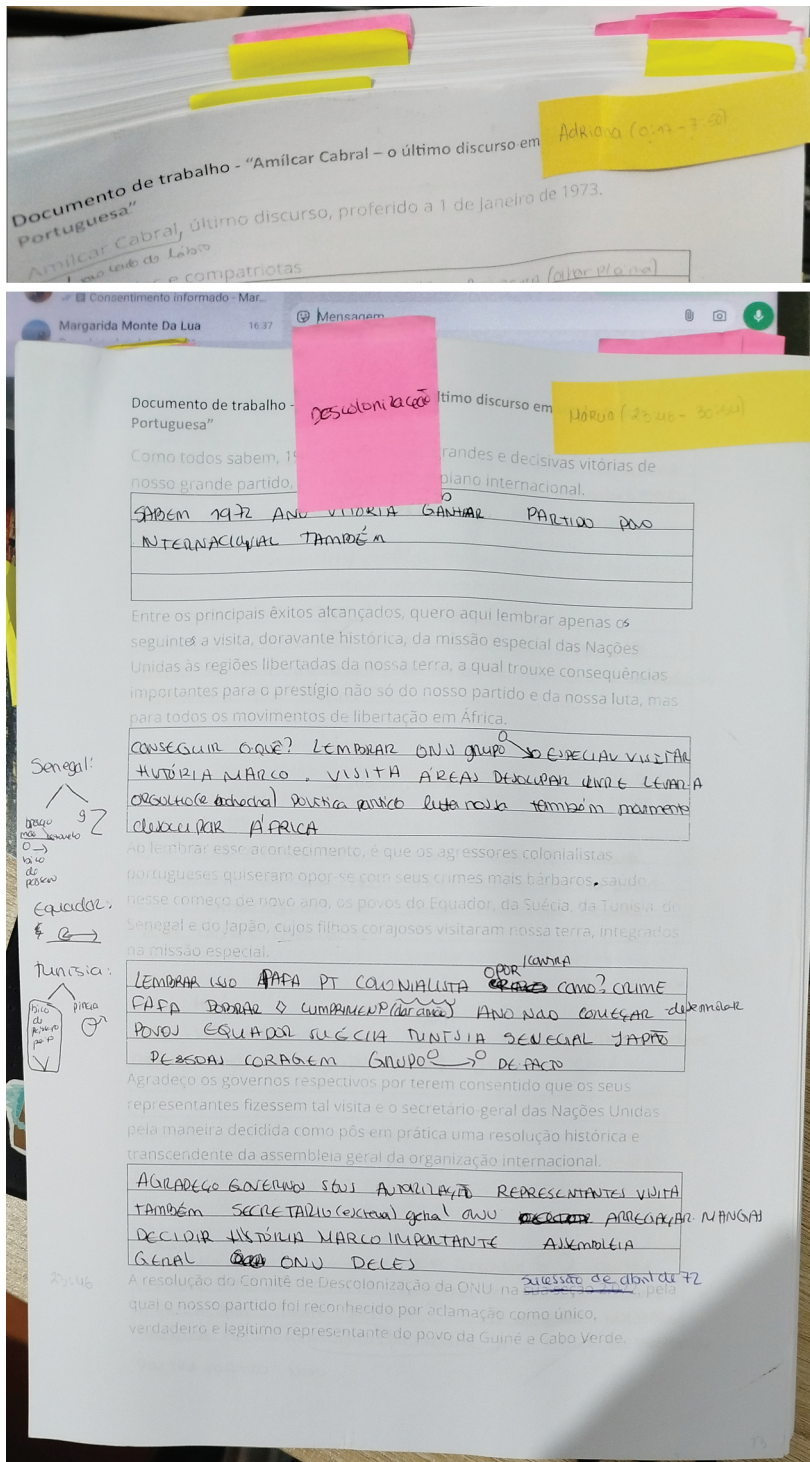 Adriana (0:
Documento de trabalho - "Amílcar Cabral – o último discurso em
Portuguesa"
Amílcar Cabral, último discurso, proferido a 1 de Janeiro de 1973.
e compatriotas
Consentimento informado - Mar...
Margarida Monte Da Lua
16:37
Mensagem
Descolonização
Documento de trabalho -
ltimo discurso em
Portuguesa"
Como todos sabem, 19
randes e decisivas vitórias de
nosso grande partido,
plano internacional.
SABEM 1972 ANO VITÓRIA GANHAR PARTIDO POVO
INTERNACIONAL TAMBÉM
Entre os principais êxitos alcançados, quero aqui lembrar apenas os
seguintes a visita, doravante histórica, da missão especial das Nações
Unidas às regiões libertadas da nossa terra, a qual trouxe consequências
importantes para o prestígio não só do nosso partido e da nossa luta, mas
para todos os movimentos de libertação em África.
CONSEGUIR O QUÊ? LEMBRAR ONU grupo ESPECIAL VISITAR
HISTÓRIA MARCO. VISITA ÁREAS DESOCUPAR LIVRE LEVAR A
ORGULHO (e bochecha) política partido luta nossa também movimento
desocupar ÁFRICA
Senegal:
bico
de
Equador:
Tunísia:
bico
de
pinça
Ao lembrar esse acontecimento, é que os agressores colonialistas
portugueses quiseram opor-se com seus crimes mais bárbaros, saúdo
nesse começo de novo ano, os povos do Equador, da Suécia, da Tunísia, do
Senegal e do Japão, cujos filhos corajosos visitaram nossa terra, integrados
na missão especial.
LEMBRAR ISSO PT COLONIALISTA OPOR /CONTRA COMO? CRIME
CUMPRIMENTO (dar a mão) ANO NOVO COMEÇAR
POVOS EQUADOR SUÉCIA TUNÍSIA SENEGAL JAPÃO
PESSOAS CORAGEM GRUPO DE FACTO
Agradeço os governos respectivos por terem consentido que os seus
representantes fizessem tal visita e o secretário-geral das Nações Unidas
pela maneira decidida como pôs em prática uma resolução histórica e
transcendente da assembleia geral da organização internacional.
AGRADEÇO GOVERNOS SEUS AUTORIZAÇÃO REPRESENTANTES VISITA
TAMBÉM SECRETÁRIO (escreva) geral ONU ARREGAÇAR MANGAS
DECIDIR HISTÓRIA MARCO IMPORTANTE ASSEMBLEIA
GERAL ONU DELES
23:46
A resolução do Comitê de Descolonização da ONU, na sucessão de abril de 72, pela
qual o nosso partido foi reconhecido por aclamação como único,
verdadeiro e legítimo representante do povo da Guiné e Cabo Verde.